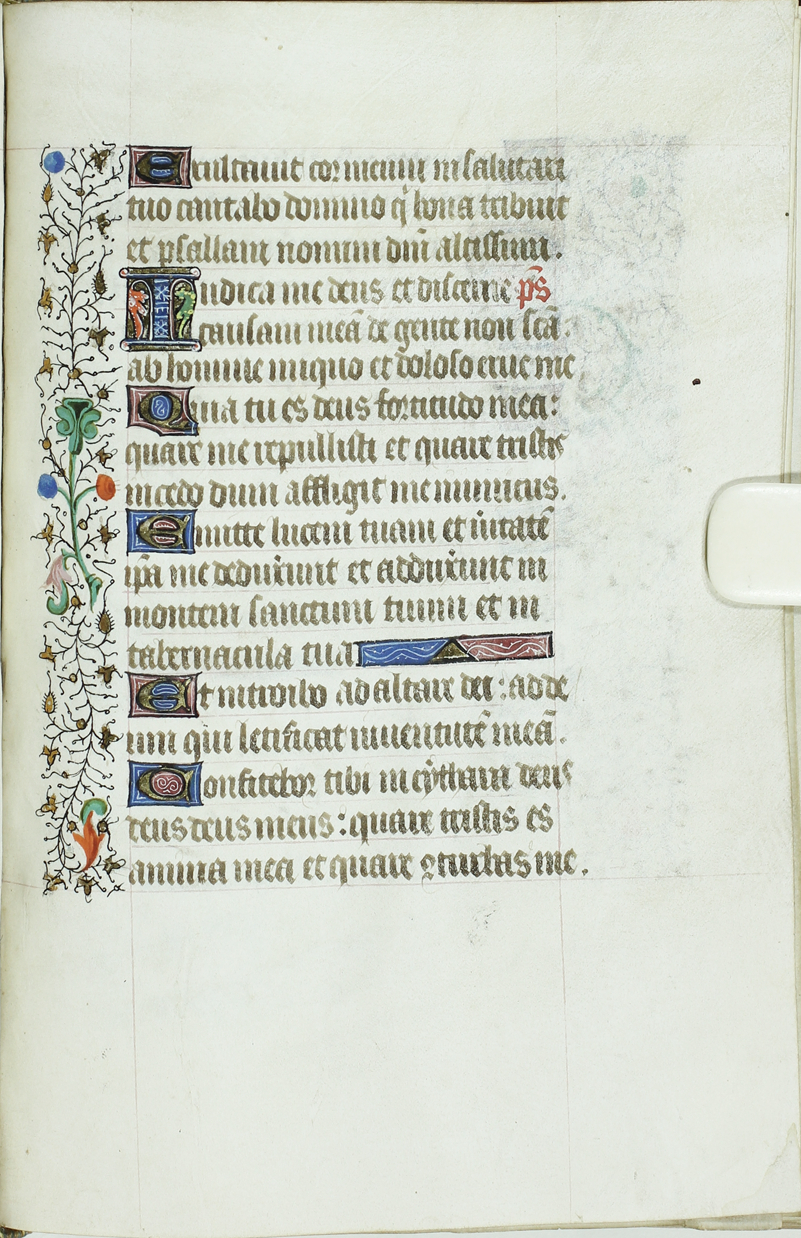 Exultauit cor meum in salutari
tuo cantabo domino q̇ bona tribuit
et psallam nomini dn̄i altissimi.
Iudica me deus et discerne pš
causam meā de gente non scā.
ab homine iniquo et doloso erue me
Quia tu es deus fortitudo mea:
quare me repullisti et quare tristis
incedo dum affligit me inimicus.
Emitte lucem tuam et ūitatē
ip̄a me deduxerunt et adduxerunt in
montem sanctum tuum et in
tabernacula tua
Et introibo ad altare dei: ad de
um qui letificat iuuentutē meā.
Confitebor tibi in cythara deus
deus deus meus: quare tristis es
anima mea et quare ꝯturbas me.